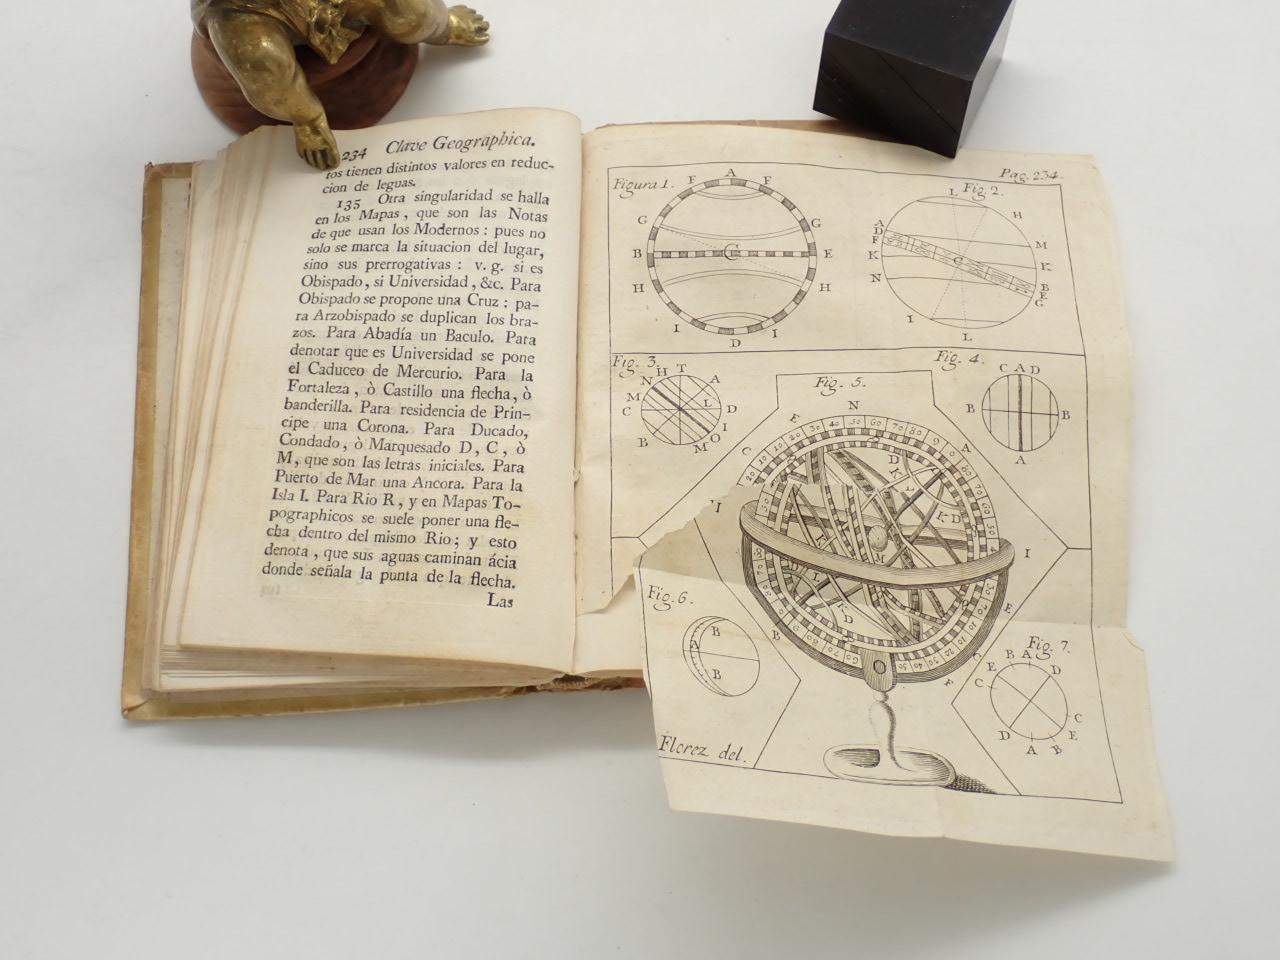 234 Clave Geographica.
tos tienen distintos valores en reduc-
cion de leguas.
135 Otra singularidad se halla
en los Mapas, que son las Notas
de que usan los Modernos: pues no
solo se marca la situacion del lugar,
sino sus prerrogativas: v. g. si es
Obispado, si Universidad, &c. Para
Obispado se propone una Cruz: pa-
ra Arzobispado se duplican los bra-
zos. Para Abadía un Baculo. Para
denotar que es Universidad se pone
el Caduceo de Mercurio. Para la
Fortaleza, ò Castillo una flecha, ò
banderilla. Para residencia de Prin-
cipe una Corona. Para Ducado,
Condado, ò Marquesado D, C, ò
M, que son las letras iniciales. Para
Puerto de Mar una Ancora. Para la
Isla I. Para Rio R, y en Mapas To-
pographicos se suele poner una fle-
cha dentro del mismo Rio; y esto
denota, que sus aguas caminan ácia
donde señala la punta de la flecha.
Las
Pag. 234.
Figura 1.
F A F
G G
B C E
H H
I I
D
Fig. 2.
L
H
A
D
F
M
K K
C
N
B
E
G
I
L
Fig. 3
N H T A
M L
C D
I
B O
M
Fig. 4.
C A D
B B
A
Fig. 5.
N
E A
C D
I I
K D
M
D L
K D
B E
F
Fig. 6.
B
A
B
Fig. 7.
B A
E D
C
C
D E
A B
Florez del.